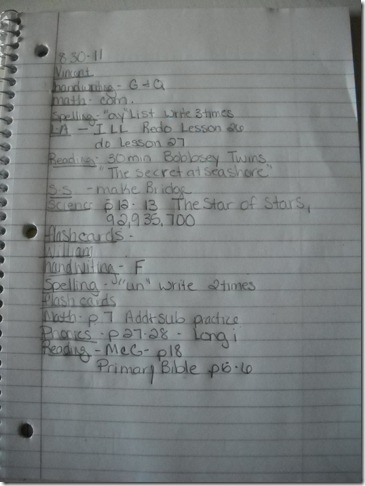 8.30.11
Vincent
handwriting - G & Q
math - coin.
Spelling - "ay" List write 3 times
LA - ILL Redo Lesson 26
do Lesson 27
Reading - 30 min Bobbsey Twins
"The Secret at Seashore"
S.S - make Bridge
Science p12-13 The Star of Stars,
92,935,700
flashcards -
William
handwriting - F
Spelling - "un" write 2 times
flash cards
Math - p 7 Add+Sub practice
Phonics - p 27-28 - Long i
Reading - McG - p18
Primary Bible p5-6